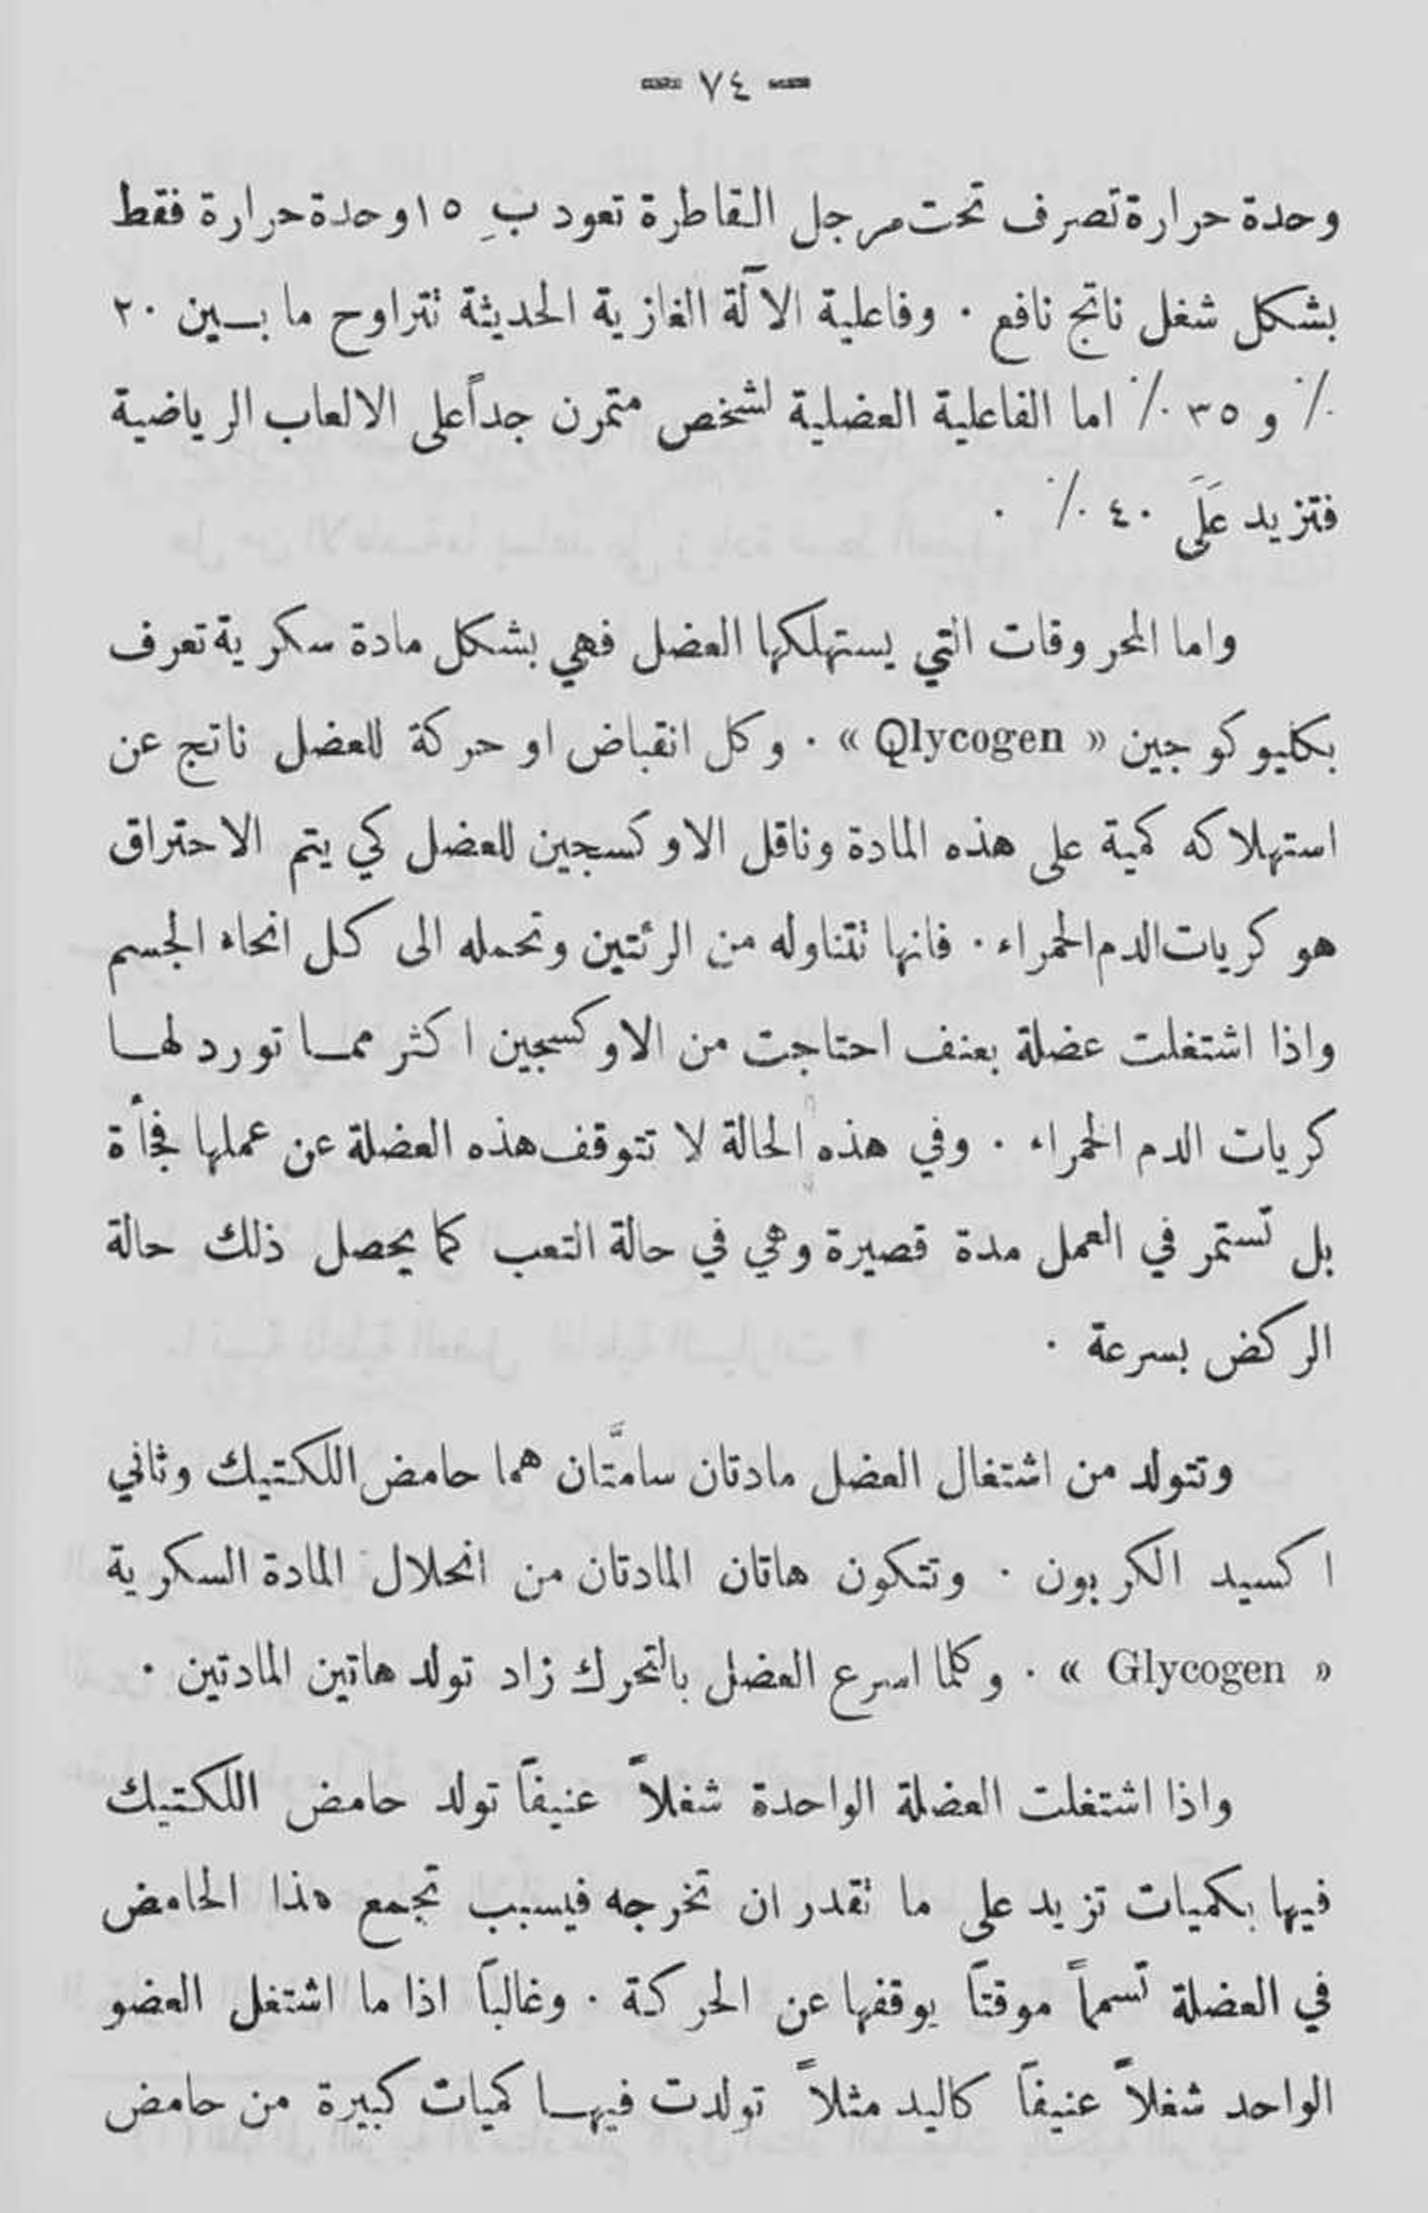 — ٧٤ —
وحدة حرارة تصرف تحت مرجل القاطرة تعود بِ ١٥ وحدة حرارة فقط
بشكل شغل ناتج نافع . وفاعلية الآلة الغازية الحديثة تتراوح ما بين ٢٠
٪ و ٣٥ ٪ اما الفاعلية العضلية لشخص متمرن جداً على الالعاب الرياضية
فتزيد عَلَى ٤٠ ٪ .
واما المحروقات التي يستهلكها العضل فهي بشكل مادة سكرية تعرف
بكليوكوجين « Qlycogen » . وكل انقباض او حركة للعضل ناتج عن
استهلاكه كمية على هذه المادة وناقل الاوكسجين للعضل كي يتم الاحتراق
هو كريات الدم الحمراء . فانها تتناوله من الرئتين وتحمله الى كل انحاء الجسم
واذا اشتغلت عضلة بعنف احتاجت من الاوكسجين اكثر مما تورد لها
كريات الدم الحمراء . وفي هذه الحالة لا تتوقف هذه العضلة عن عملها فجأة
بل تستمر في العمل مدة قصيرة وهي في حالة التعب كما يحصل ذلك حالة
الركض بسرعة .
وتتولد من اشتغال العضل مادتان سامَّتان هما حامض اللكتيك وثاني
اكسيد الكربون . وتتكون هاتان المادتان من انحلال المادة السكرية
« Glycogen » . وكلما اسرع العضل بالتحرك زاد تولد هاتين المادتين .
واذا اشتغلت العضلة الواحدة شغلاً عنيفاً تولد حامض اللكتيك
فيها بكميات تزيد على ما تقدر ان تخرجه فيسبب تجمع هذا الحامض
في العضلة تسمماً موقتاً يوقفها عن الحركة . وغالباً اذا ما اشتغل العضو
الواحد شغلاً عنيفاً كاليد مثلاً تولدت فيها كميات كبيرة من حامض